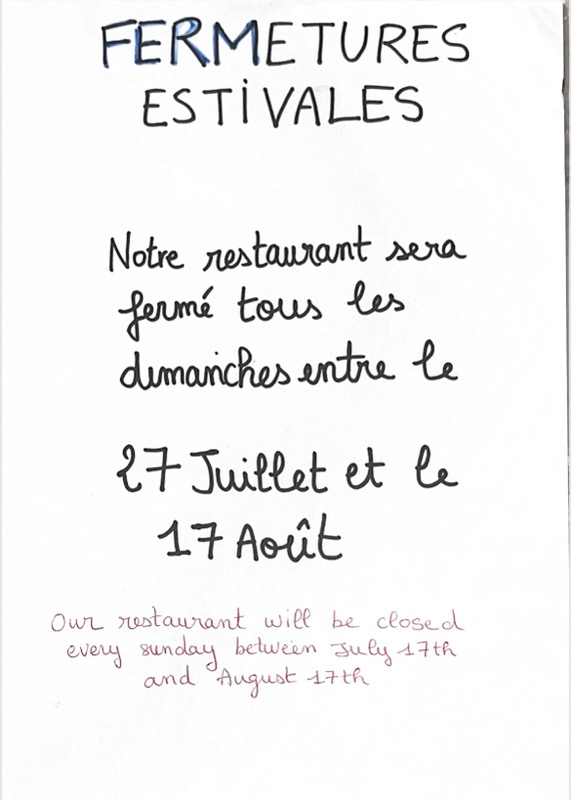 FERMETURES
ESTIVALES
Notre restaurant sera
fermé tous les
dimanches entre le
27 Juillet et le
17 Août
Our restaurant will be closed
every sunday between July 17th
and August 17th